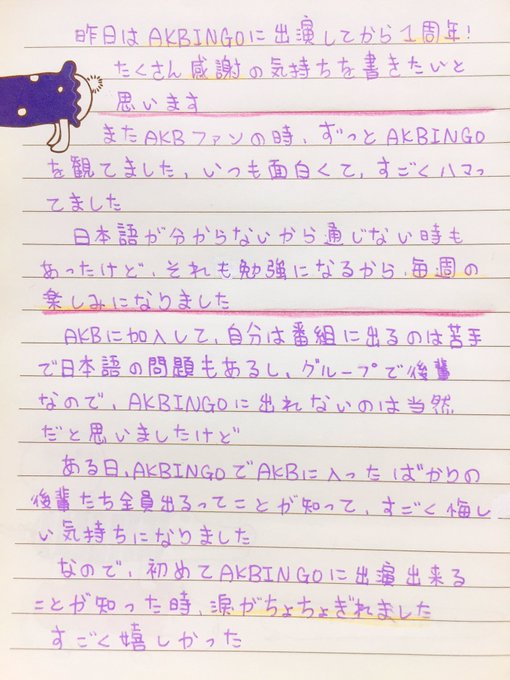 昨日はAKBINGOに出演してから1周年!
たくさん感謝の気持ちを書きたいと
思います
まだAKBファンの時、ずっとAKBINGO
を観てました、いつも面白くて、すごくハマっ
てました
日本語が分からないから通じない時も
あったけど、それも勉強になるから、毎週の
楽しみになりました
AKBに加入して、自分は番組に出るのは苦手
で日本語の問題もあるし、グループで後輩
なので、AKBINGOに出れないのは当然
だと思いましたけど
ある日、AKBINGOでAKBに入ったばかりの
後輩たち全員出るってことが知って、すごく悔し
い気持ちになりました
なので、初めてAKBINGOに出演出来る
ことが知った時、涙がちょちょぎれました
すごく嬉しかった